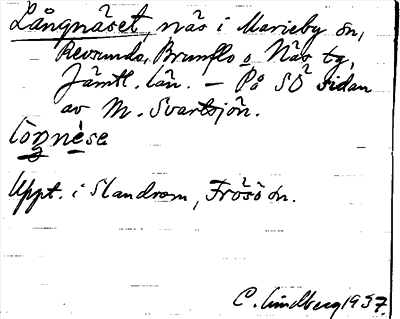 Långnäset, näs i Marieby sn,
Revsunds, Brunflo o Näs tg,
Jämtl. län. – På SÖ sidan
av M. Svartsjön.
lòŋnèse
Uppt. i Slandrom, Frösö sn.
C. Lindberg 1937.